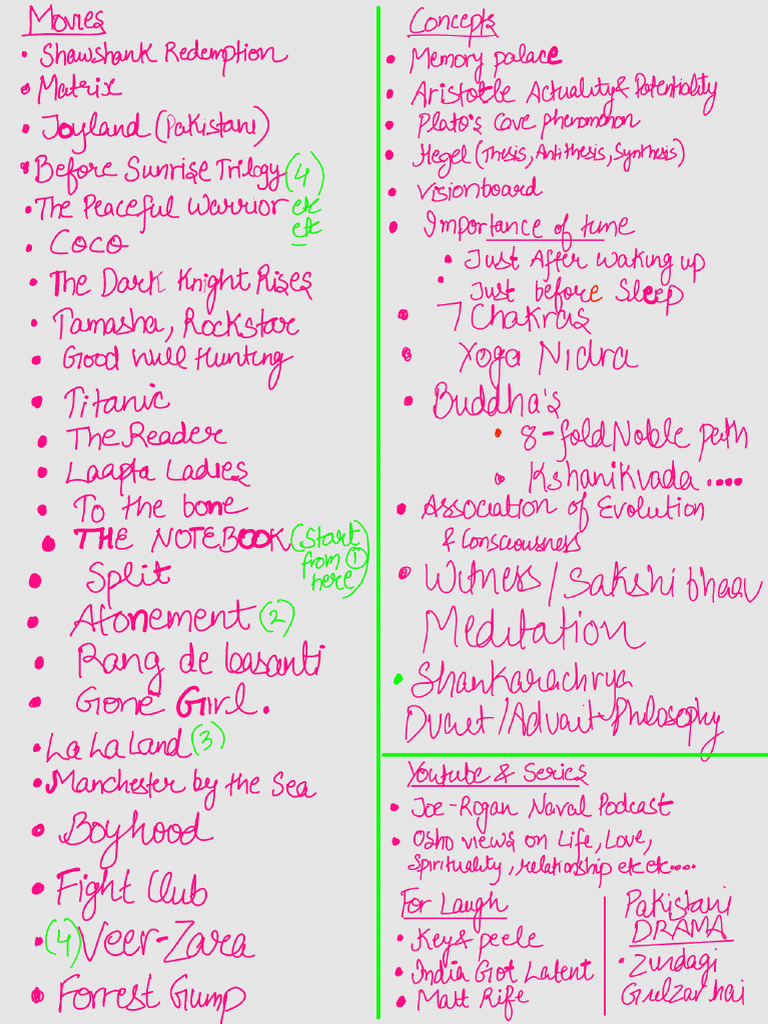 Movies
Shawshank Redemption
Matrix
Joyland (Pakistani)
Before Sunrise Trilogy (4)
The Peaceful Warrior etc
etc
Coco
The Dark Knight Rises
Tamasha, Rockstar
Good Will Hunting
Titanic
The Reader
Laapta Ladies
To the bone
THE NOTEBOOK (Start
from ①
here)
Split
Atonement (2)
Rang de basanti
Gone Girl.
La La Land (3)
Manchester by the Sea
Boyhood
Fight Club
(4) Veer-Zara
Forrest Gump
Concepts
Memory palace
Aristotle Actuality & Potentiality
Plato's Cave phenomenon
Hegel (Thesis, Antithesis, Synthesis)
visionboard
Importance of time
Just After waking up
Just before Sleep
7 Chakras
Yoga Nidra
Buddha's
8-fold Noble path
Kshanikvada ....
Association of Evolution
& Consciousness
Witness / Sakshi bhaav
Meditation
Shankarachrya
Dvaet / Advait Philosophy
Youtube & Series
Joe-Rogan Naval Podcast
Osho views on Life, Love,
Spirituality, relationship etc etc....
For Laugh
Key & peele
India Got Latent
Matt Rife
Pakistani
DRAMA
Zindagi
Gulzar hai